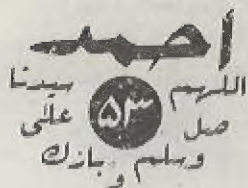 أحمد
اللهم
صل
وسلم
و
بارك
على
سيدنا
٥٣